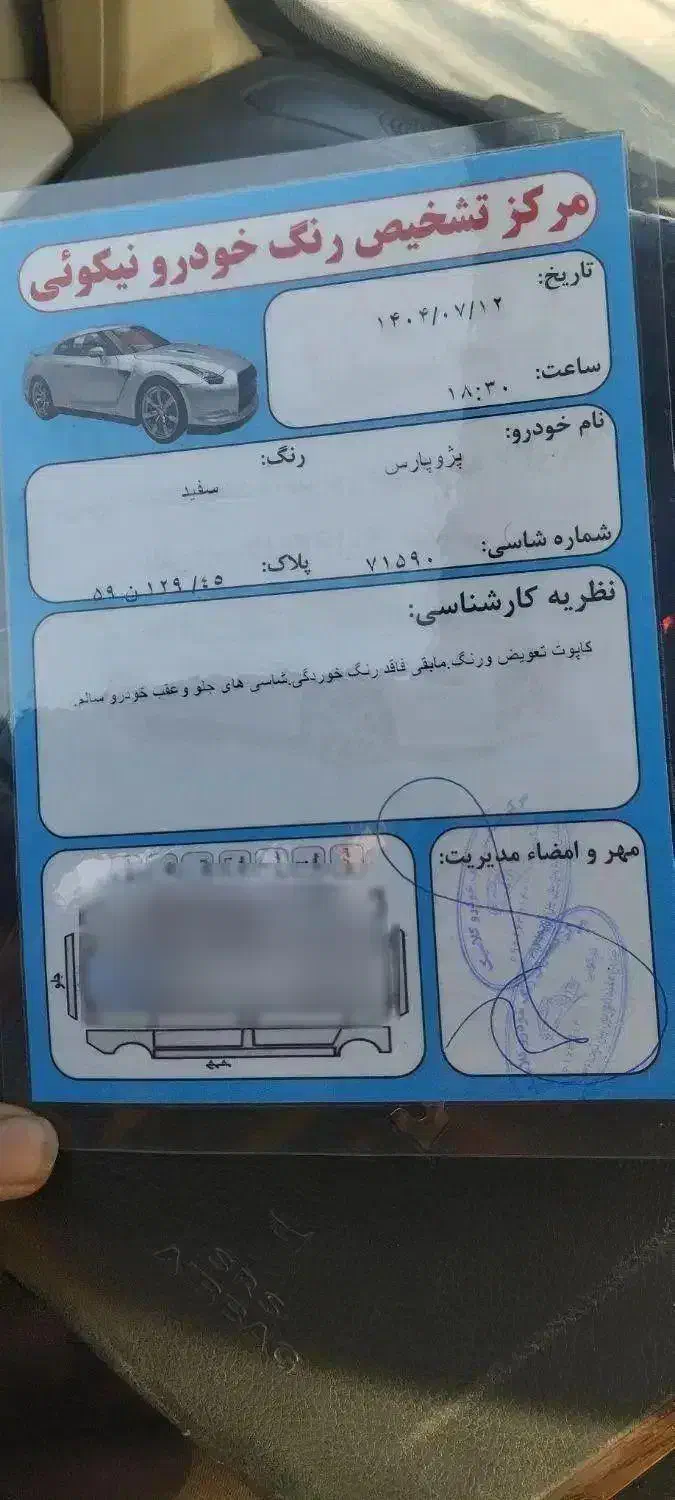 مرکز تشخیص رنگ خودرو نیکوئی
تاریخ:
۱۴۰۴/۰۷/۱۲
ساعت:
۱۸:۳۰
نام خودرو:
پژوپارس
رنگ:
سفید
شماره شاسی:
۷۱۵۹۰
پلاک:
۵۹ ن ۱۲۹ /۴۵
نظریه کارشناسی:
کاپوت تعویض ورنگ.مابقی فاقد رنگ خوردگی.شاسی های جلو و عقب خودرو سالم.
مهر و امضاء مدیریت:
جلو
SRS
AIRBAG